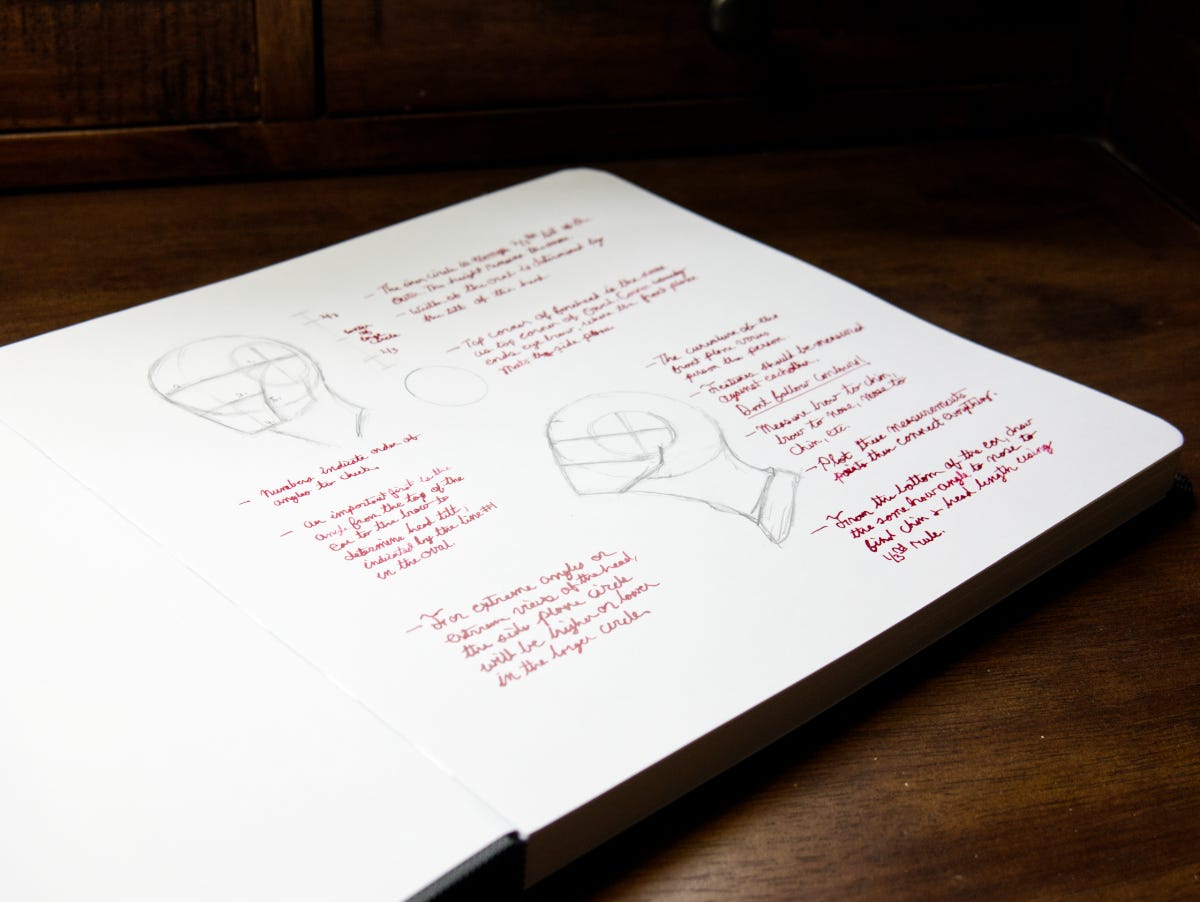 - The inner circle is 2/3 rd
- Width of the oval is determined by
the tilt of the head.
2/3
Large
Circle
1/3
- Top corner of forehead is the same
as top corner of
ends eye brow, where the front plane
Meets the side plane.
- Numbers indicate order of
angles to check.
- An important first is the
angle from the top of the
Ear to the brow to
determine head tilt,
indicated by the line #1
in the oval.
- The curvature of the
front plane varies
person to person
- Features should be measured
against eachother.
Dont follow contours!
- Measure brow to chin,
brow to nose, nose to
chin, etc.
- Plot these measurements
points then connect everything.
- From the bottom of the ear, draw
the same brow angle to nose to
find chin & head length using
1/3rd rule.
- For extreme angles or
extreme views of the head,
the side plane circle
will be higher or lower
in the larger circle.